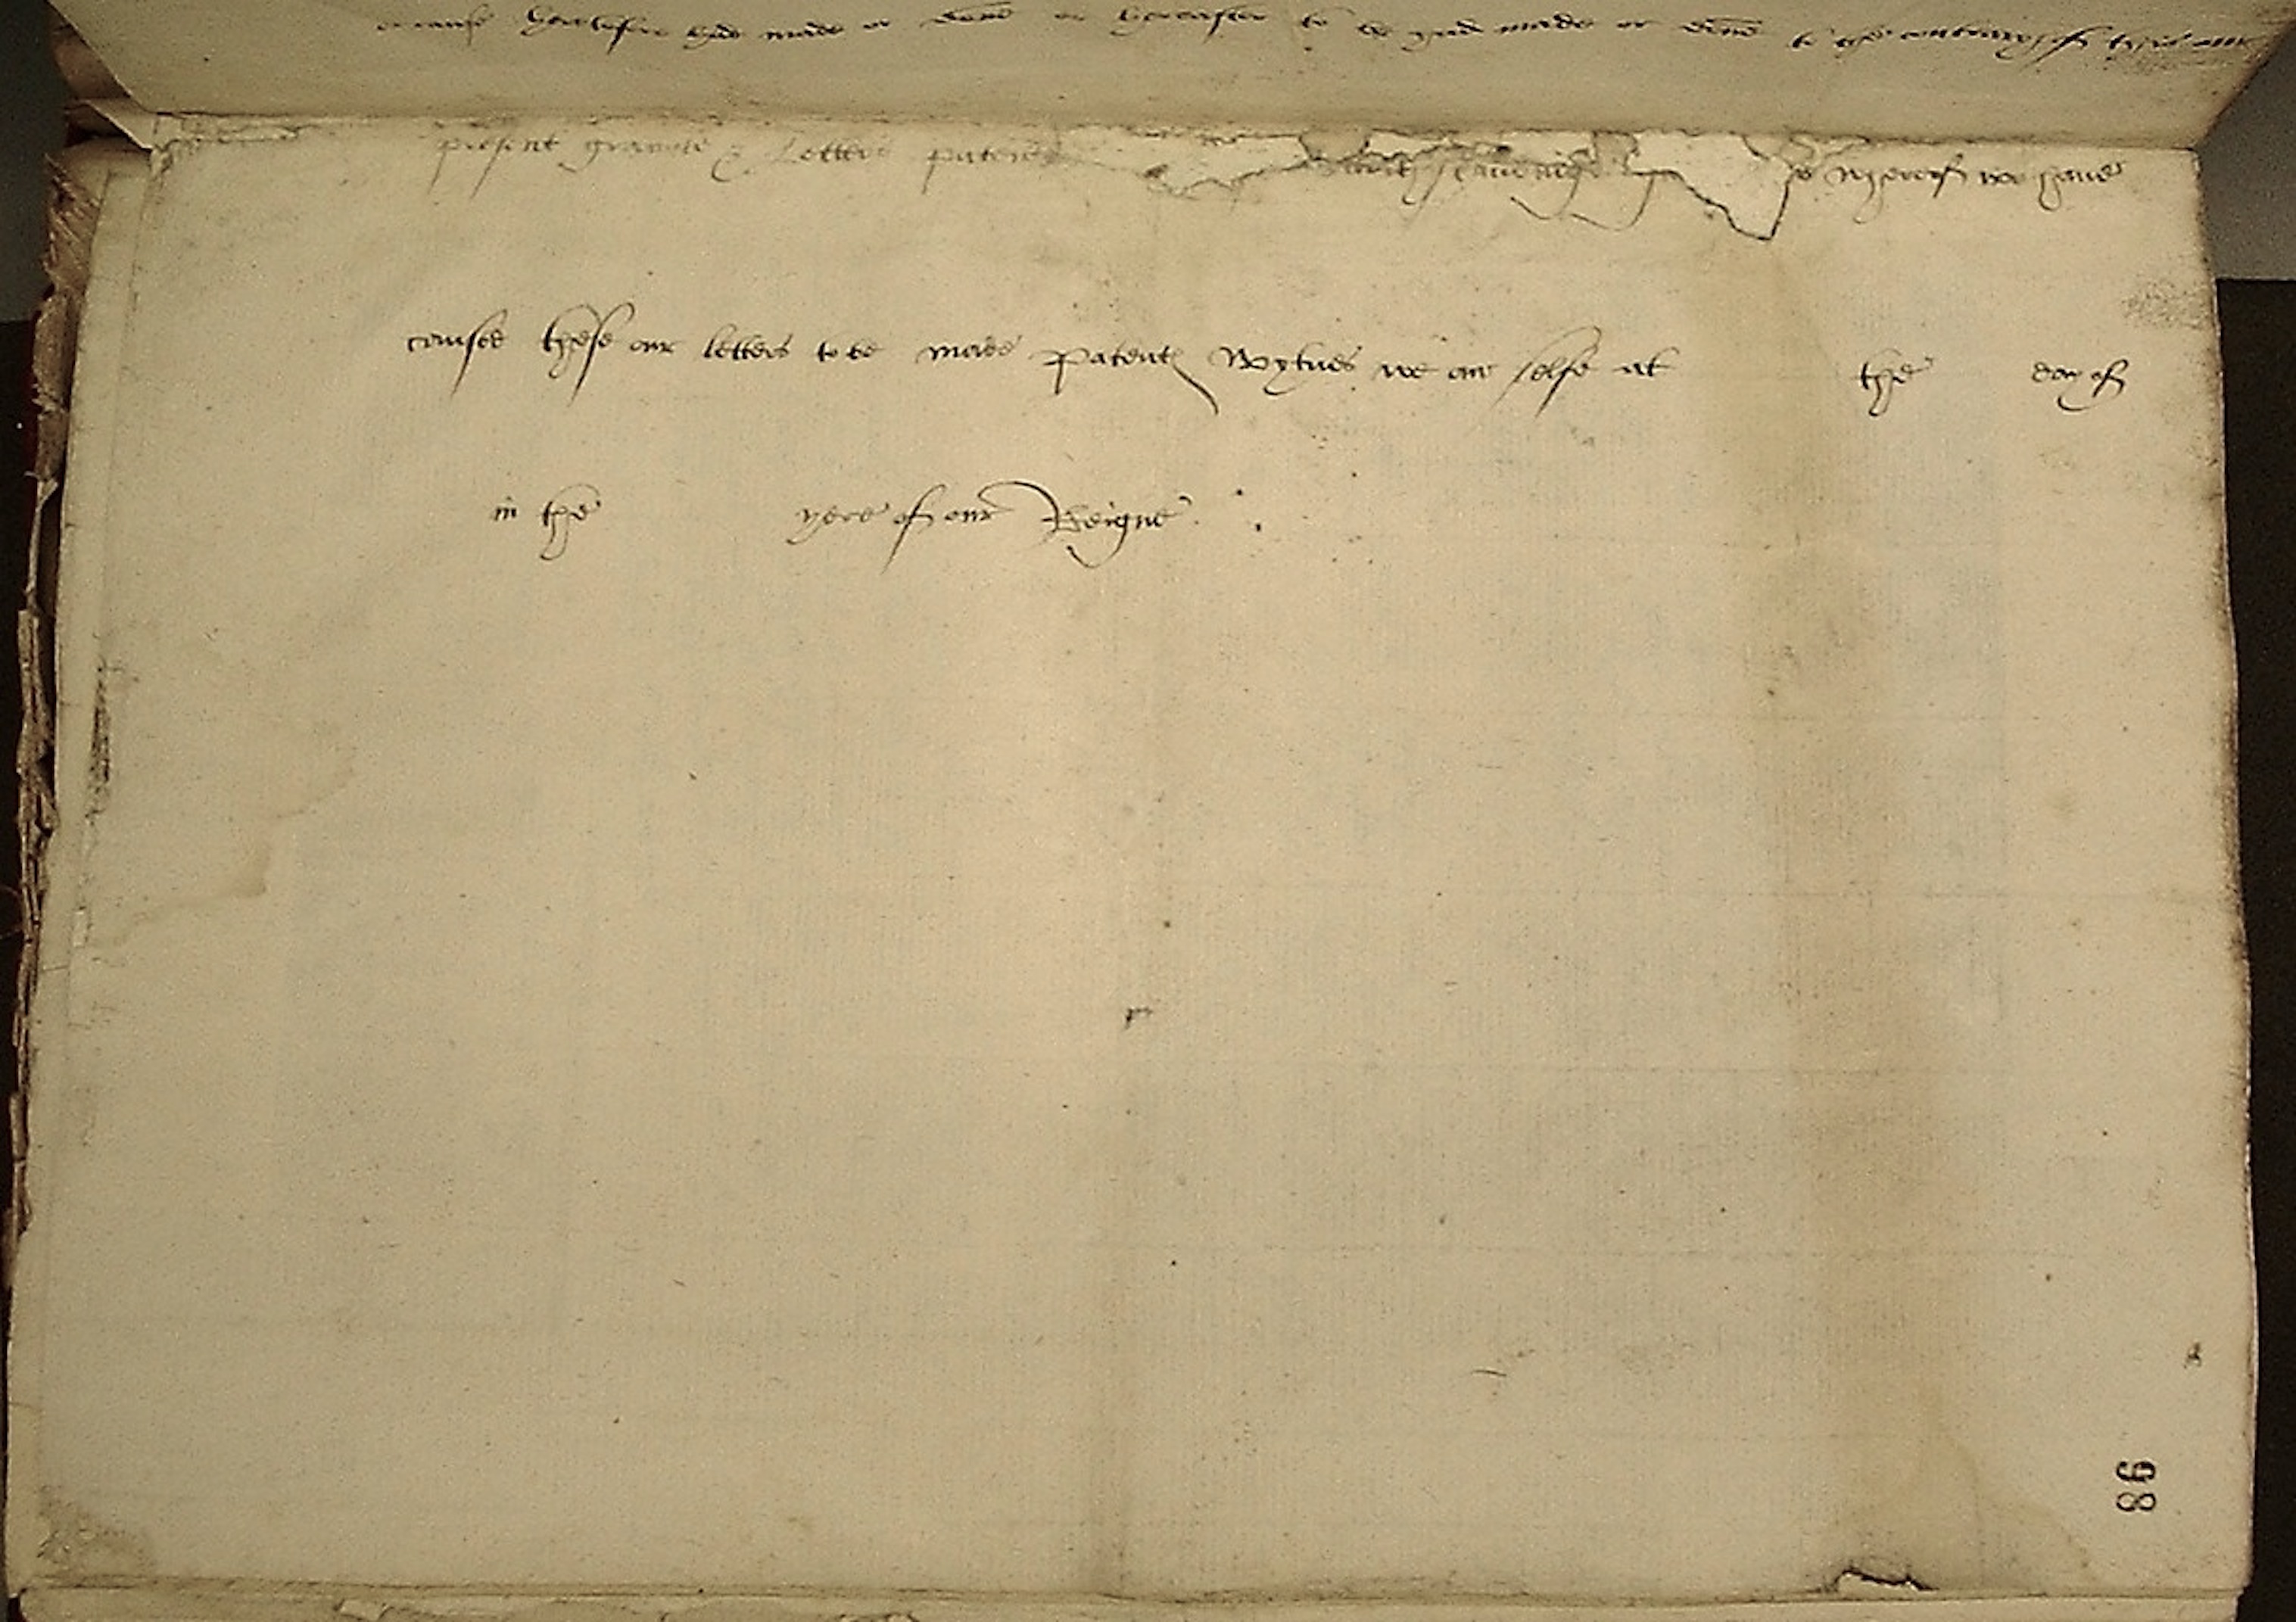 or cause heretofore had made or done or hereafter to be had made or done to the contrary of this our
present graunte & letters patent notwithstanding In wherof we haue
caused these our letters to be made patent Wytnes we our selfe at the day of
in the yere of our Reigne
98